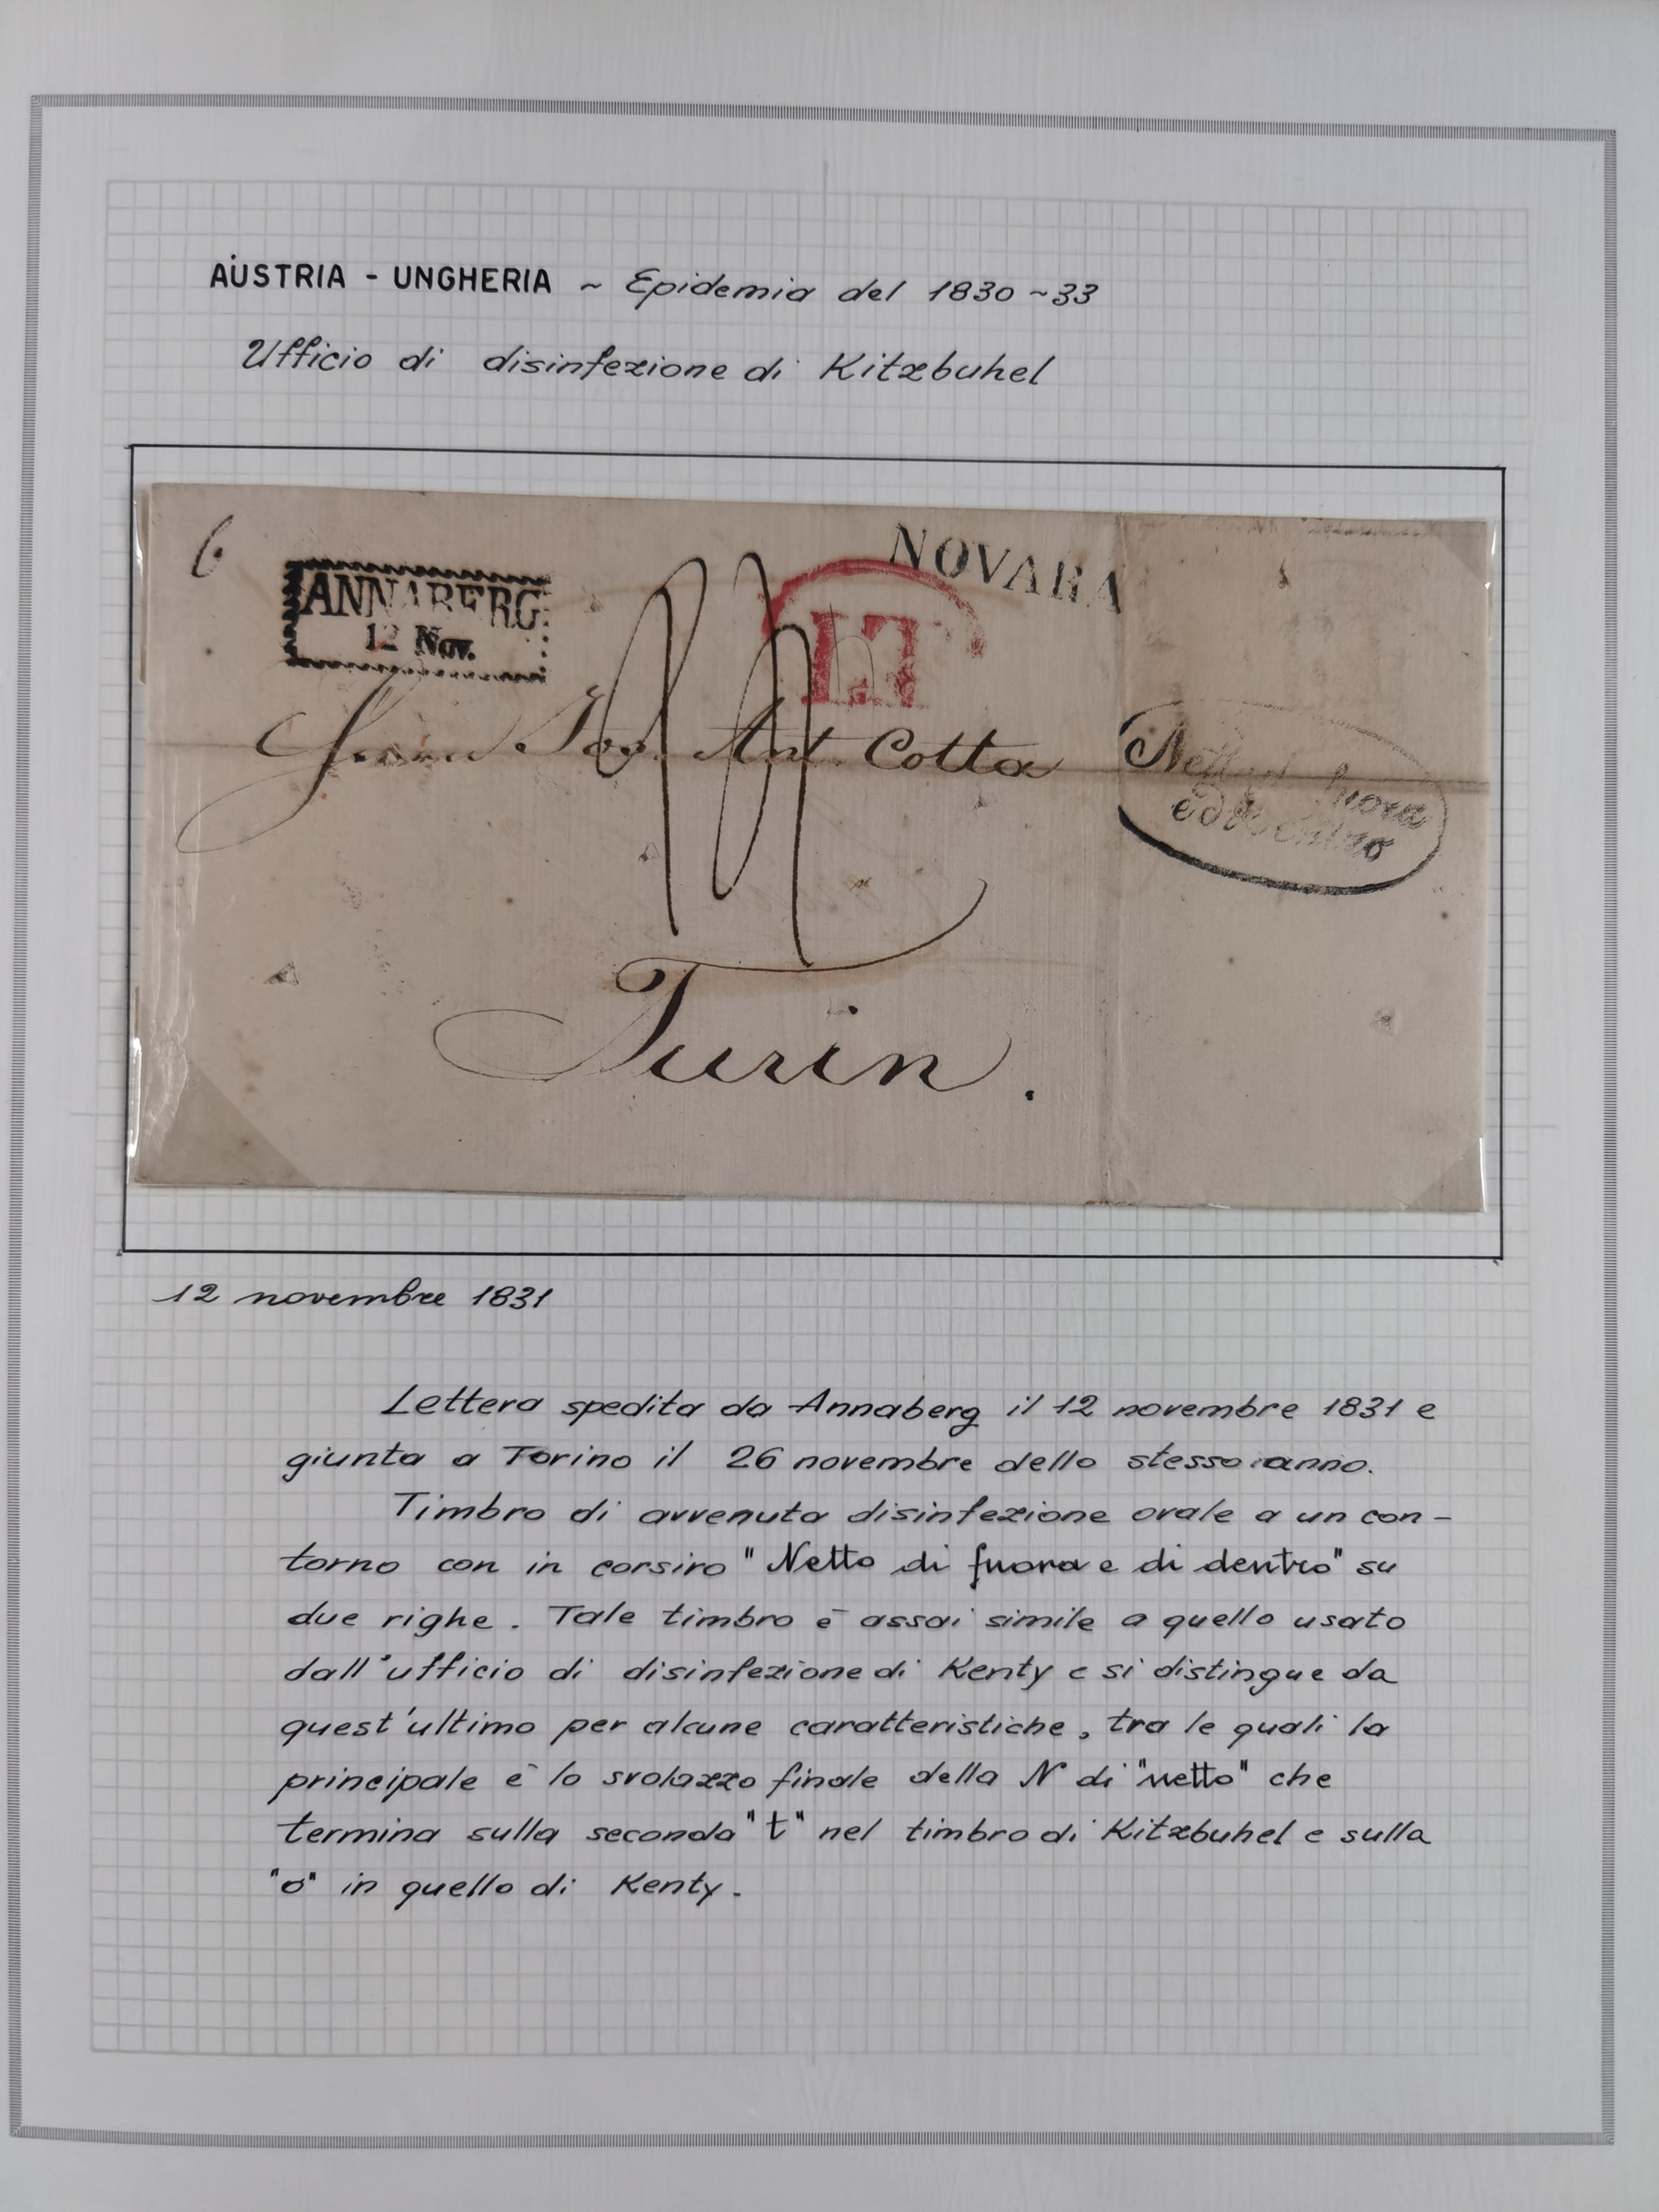 AUSTRIA - UNGHERIA ~ Epidemia del 1830~33
Ufficio di disinfezione di Kitzbuhel
6.
NOVARA
ANNABERG
12 Nov.
LT
Ant. Cotta
Netto di fuora
e di dentro
Turin.
12 novembre 1831
Lettera spedita da Annaberg il 12 novembre 1831 e
giunta a Torino il 26 novembre dello stesso anno.
Timbro di avvenuta disinfezione ovale a un con-
torno con in corsivo "Netto di fuora e di dentro" su
due righe. Tale timbro è assai simile a quello usato
dall'ufficio di disinfezione di Kenty e si distingue da
quest'ultimo per alcune caratteristiche, tra le quali la
principale è lo svolazzo finale della N di "netto" che
termina sulla seconda "t" nel timbro di Kitzbuhel e sulla
"o" in quello di Kenty.